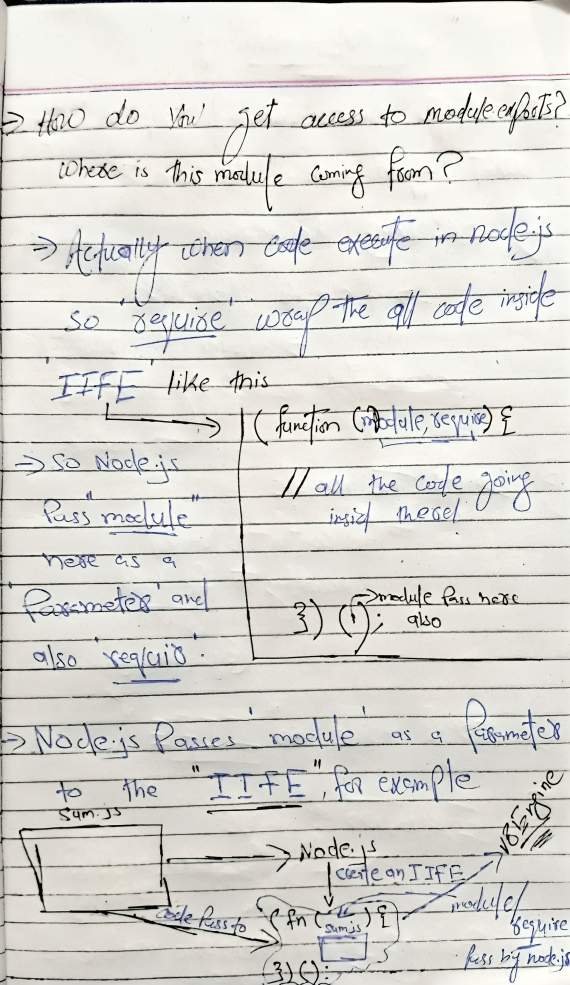 → How do you get access to module exports?
where is this module coming from?
→ Actually when code execute in node.js
so 'require' wrap the all code inside
'IIFE' like this
( function (module, require) {
// all the code going
insid there
}) ( ) ;
→ module pass here
also
→ So Node.js
Pass "module"
here as a
'Parameter' and
also 'requir'.
→ Node.js Passes 'module' as a Parameter
to the "IIFE", for example
Sum.js
→ Node.js
create an IIFE
V8 Engine
code Pass to
( fn ( ) {
sum.js
}) ( ) ;
module/
require
Pass by node.js